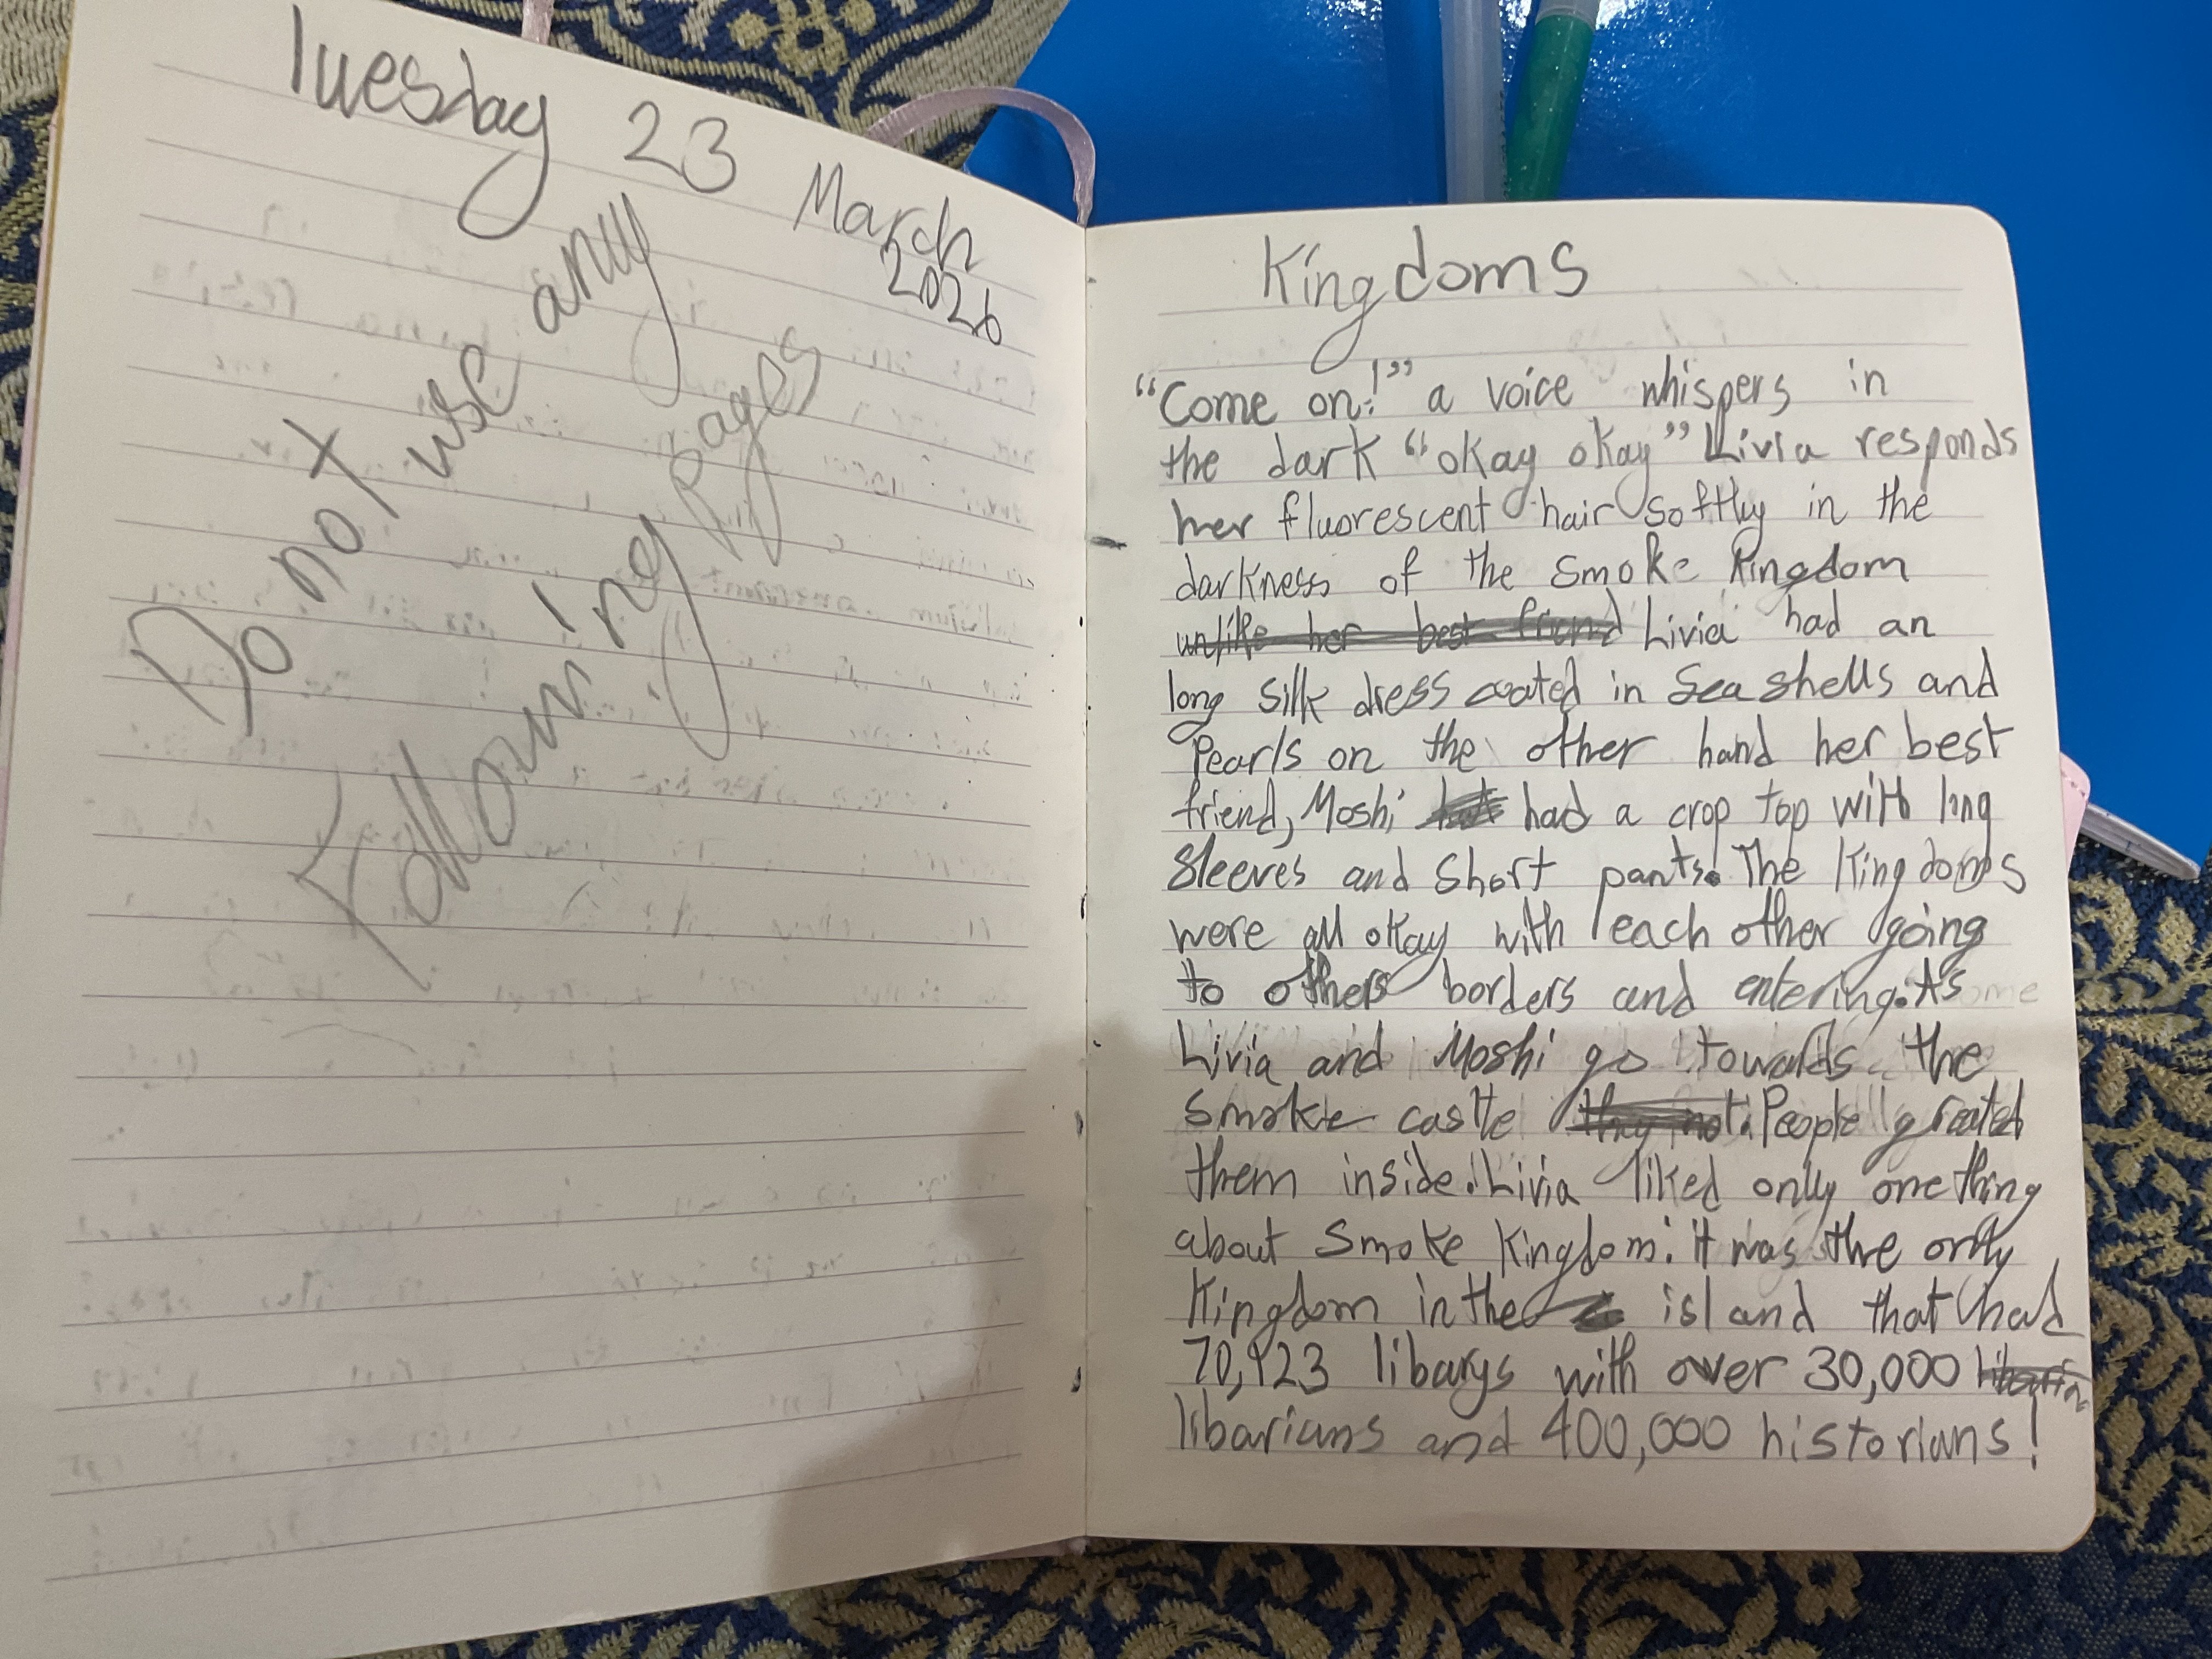 Tuesday 23 March
2026
Do not use any
Following pages
Kingdoms
“Come on!” a voice whispers in
the dark “okay okay” Livia responds
her fluorescent hair softly in the
darkness of the smoke kingdom
unlike her best friend Livia had an
long silk dress coated in Sea shells and
Pearls on the other hand her best
friend, Moshi had a crop top with long
Sleeves and short pants. The kingdoms
were all okay with each other going
to others borders and entering. As
Livia and Moshi go towards the
smoke castle they not. People greated
them inside. Livia liked only one thing
about Smoke kingdom: it was the only
Kingdom in the island that had
70,923 libarys with over 30,000
libarians and 400,000 historians!